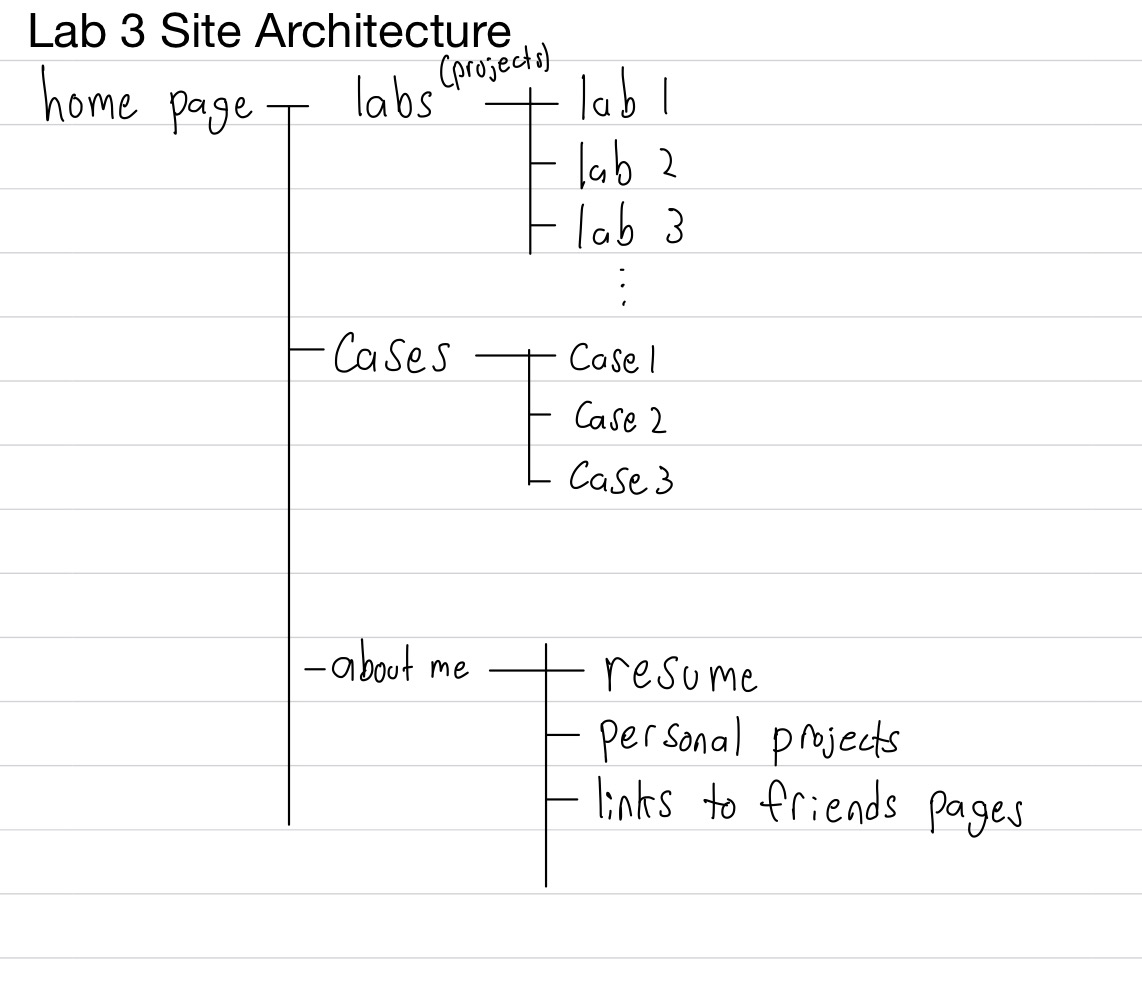 Lab 3 Site Architecture
home page labs (projects) lab 1
lab 2
lab 3
⋮
Cases Case 1
Case 2
Case 3
about me resume
personal projects
links to friends pages